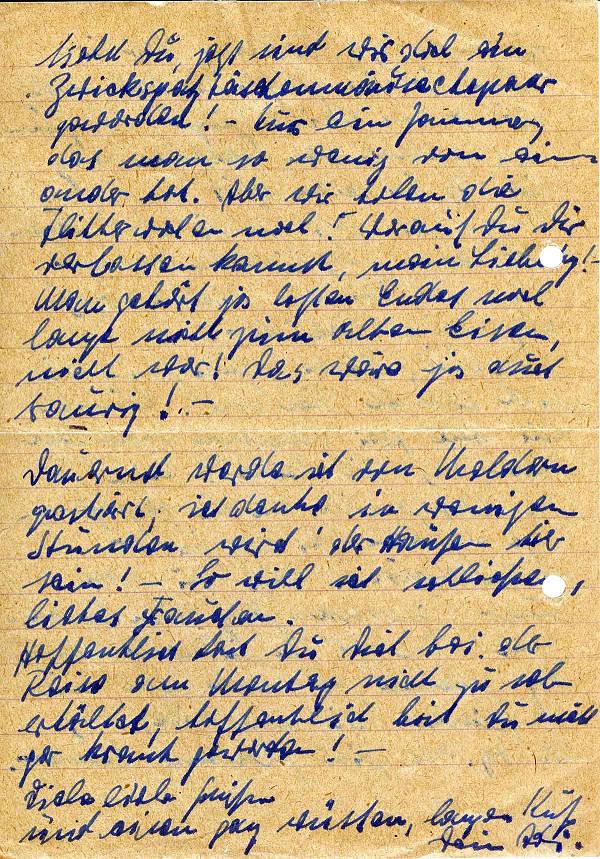 Siehst Du, jetzt sind wir doch ein
geworden! - Nur ein Jammer,
das man so wenig von ein-
ander hat. Aber wir holen die
Flitterwochen nach! Worauf Du Dir
verlassen kannst, mein Liebling! -
Man gehört ja letzten Endes noch
lange nicht zum alten Eisen,
nicht war! Das wäre ja auch
traurig! -
Dauernd werde ich von Meldern
gestört, ich denke in wenigen
Stunden wird der Haufen hier
sein! - So will ich schliessen,
liebes Frauchen.
Hoffentlich hast Du Dich bei der
Reise am Montag nicht zu sehr
erkältet, hoffentlich bist Du nicht
gar krank geworden! -
Viele liebe Grüße
und einen ganz süssen, langen Kuß
Dein